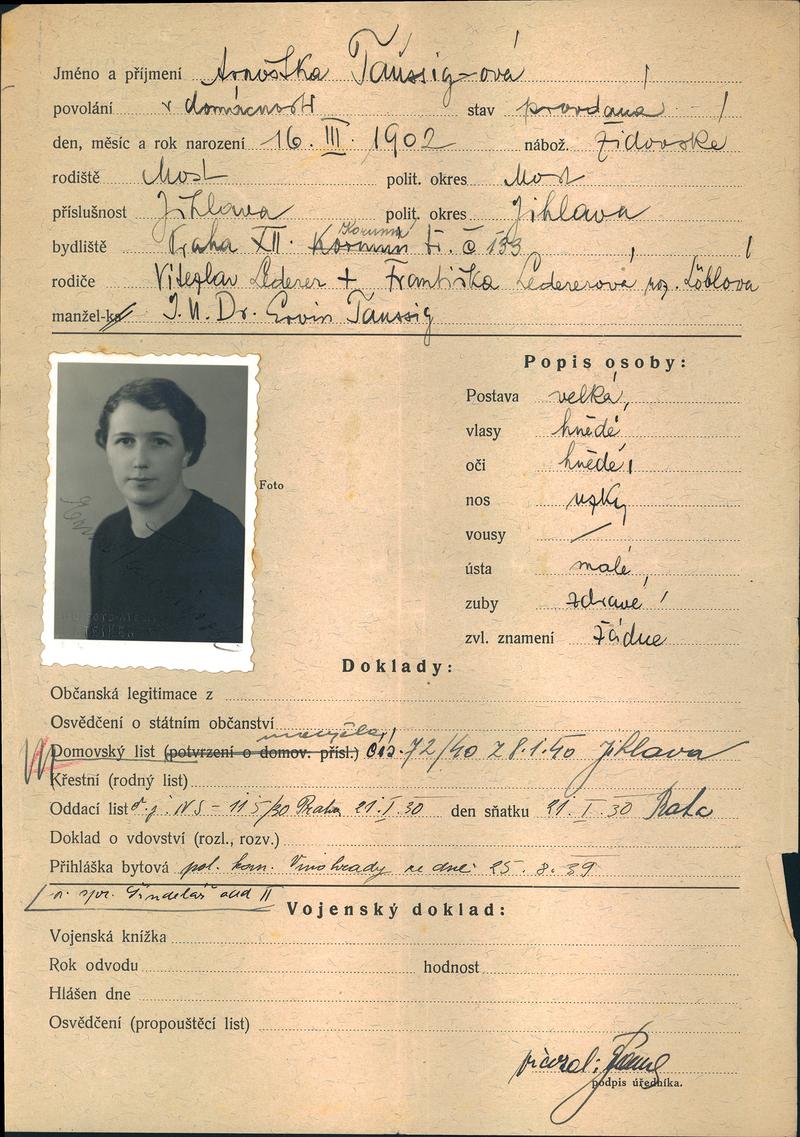 Jméno a příjmení Arnoštka Taussig-ová
povolání v domácnosti stav provdaná
den, měsíc a rok narození 16. III. 1902 nábož. židovské
rodiště Most polit. okres Most
příslušnost Jihlava polit. okres Jihlava
Korunní
bydliště Praha XII. tř. č 133
rodiče Vítězslav Lederer + Františka Ledererová roz. Löblová
manžel-ka J. U. Dr. Ervin Taussig
Popis osoby:
Postava velká,
vlasy hnědé
oči hnědé,
Foto
nos úzký
vousy /
ústa malé,
zuby zdravé
zvl. znamení žádné
Doklady:
Občanská legitimace z
Osvědčení o státním občanství
Domovský list (potvrzení o domov. přísl.) čís. 72/40 z 8.1.40 Jihlava
Křestní (rodný list)
Oddací list č. j. NS - 115/30 Praha 21.I.30 den sňatku 21. I. 30 Praha
Doklad o vdovství (rozl., rozv.)
Přihláška bytová pol. kom. Vinohrady ze dne 25. 8. 39
Vojenský doklad:
Vojenská knížka
Rok odvodu hodnost
Hlášen dne
Osvědčení (propouštěcí list)
podpis úředníka.